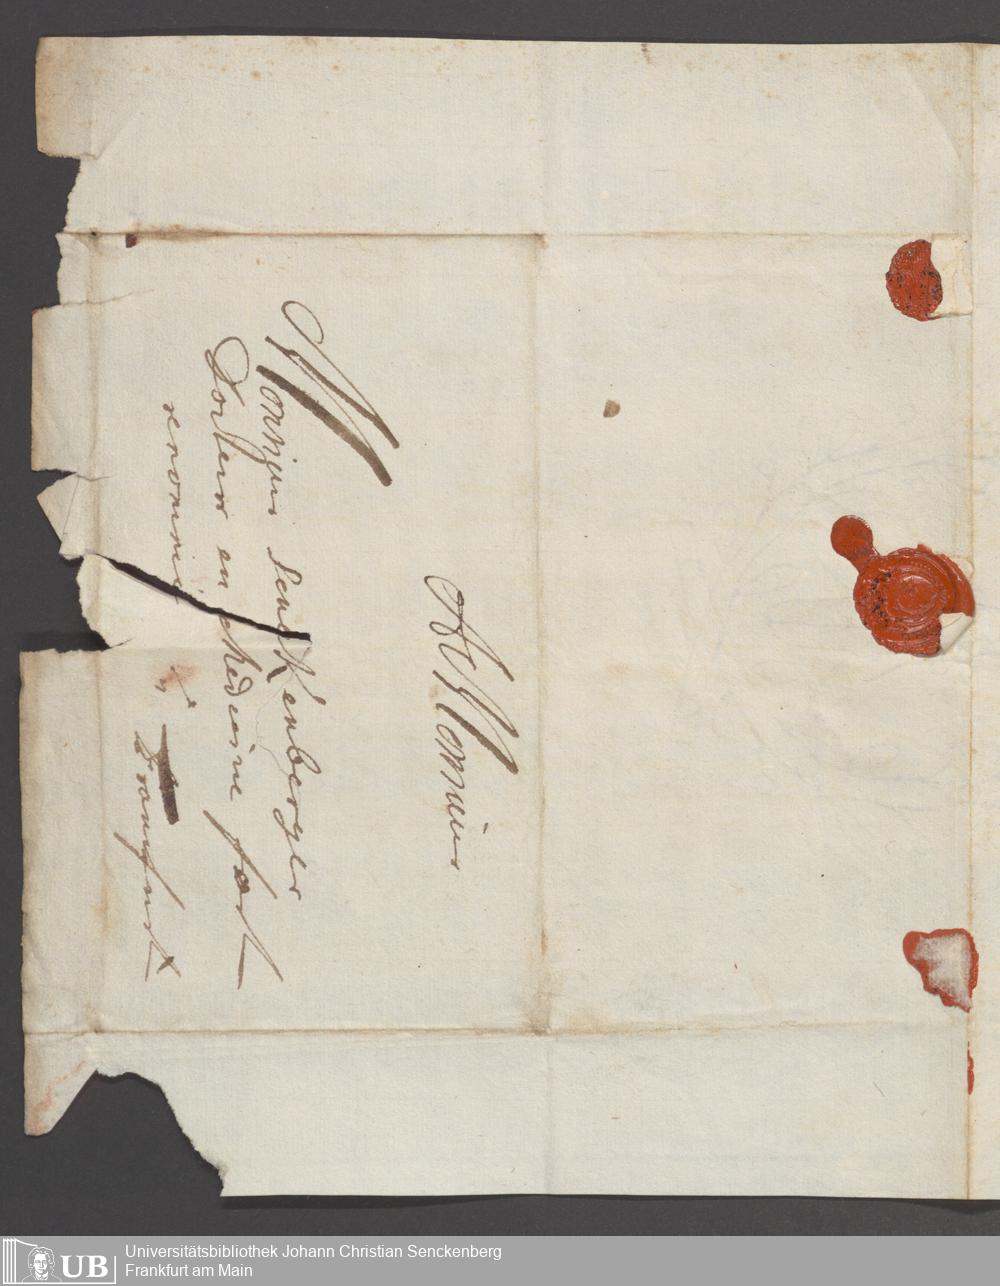 A Monsieur
Monsieur Senckenberger
Docteur en Medecine fort
renommé
à
Francfurt
UB
Universitätsbibliothek Johann Christian Senckenberg
Frankfurt am Main